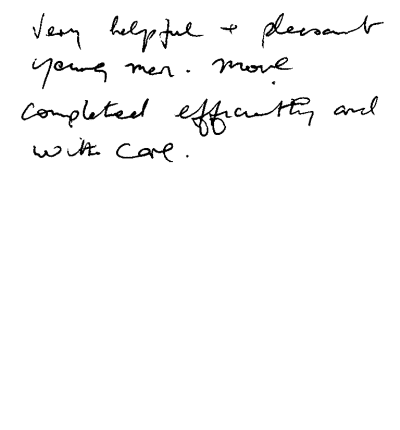 Very helpful + pleasant
young men. Move
completed efficiently and
with care.